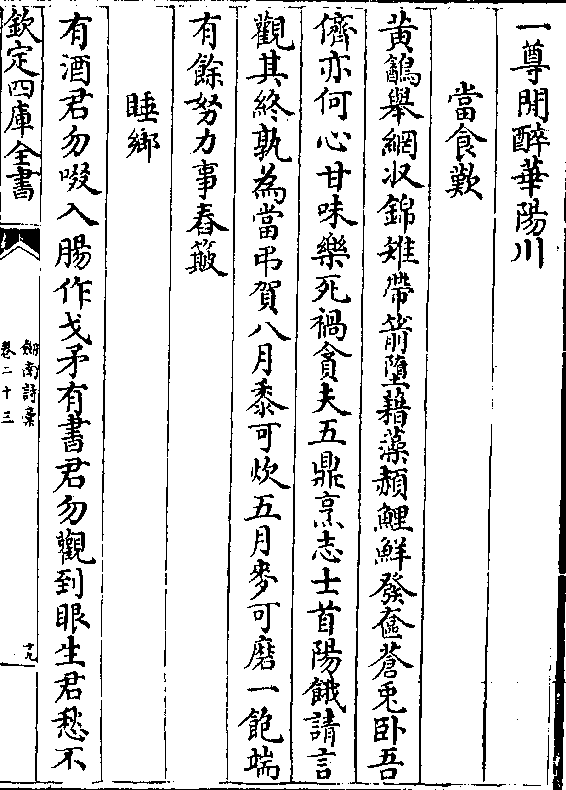 一尊開醉華陽川
當食歎
黃鷭舉網収錦雉帶箭墮藉藻頳鯉鮮發奩蒼兎卧吾
儕亦何心甘味樂死禍貪夫五鼎烹志士首陽餓請言
觀其終孰為當弔賀八月黍可炊五月麥可磨一飽端
有餘努力事舂簸
睡鄉
有酒君勿啜入腸作戈矛有書君勿觀到眼生君愁不
欽定四庫全書
劒南詩稾
卷二十三
十九